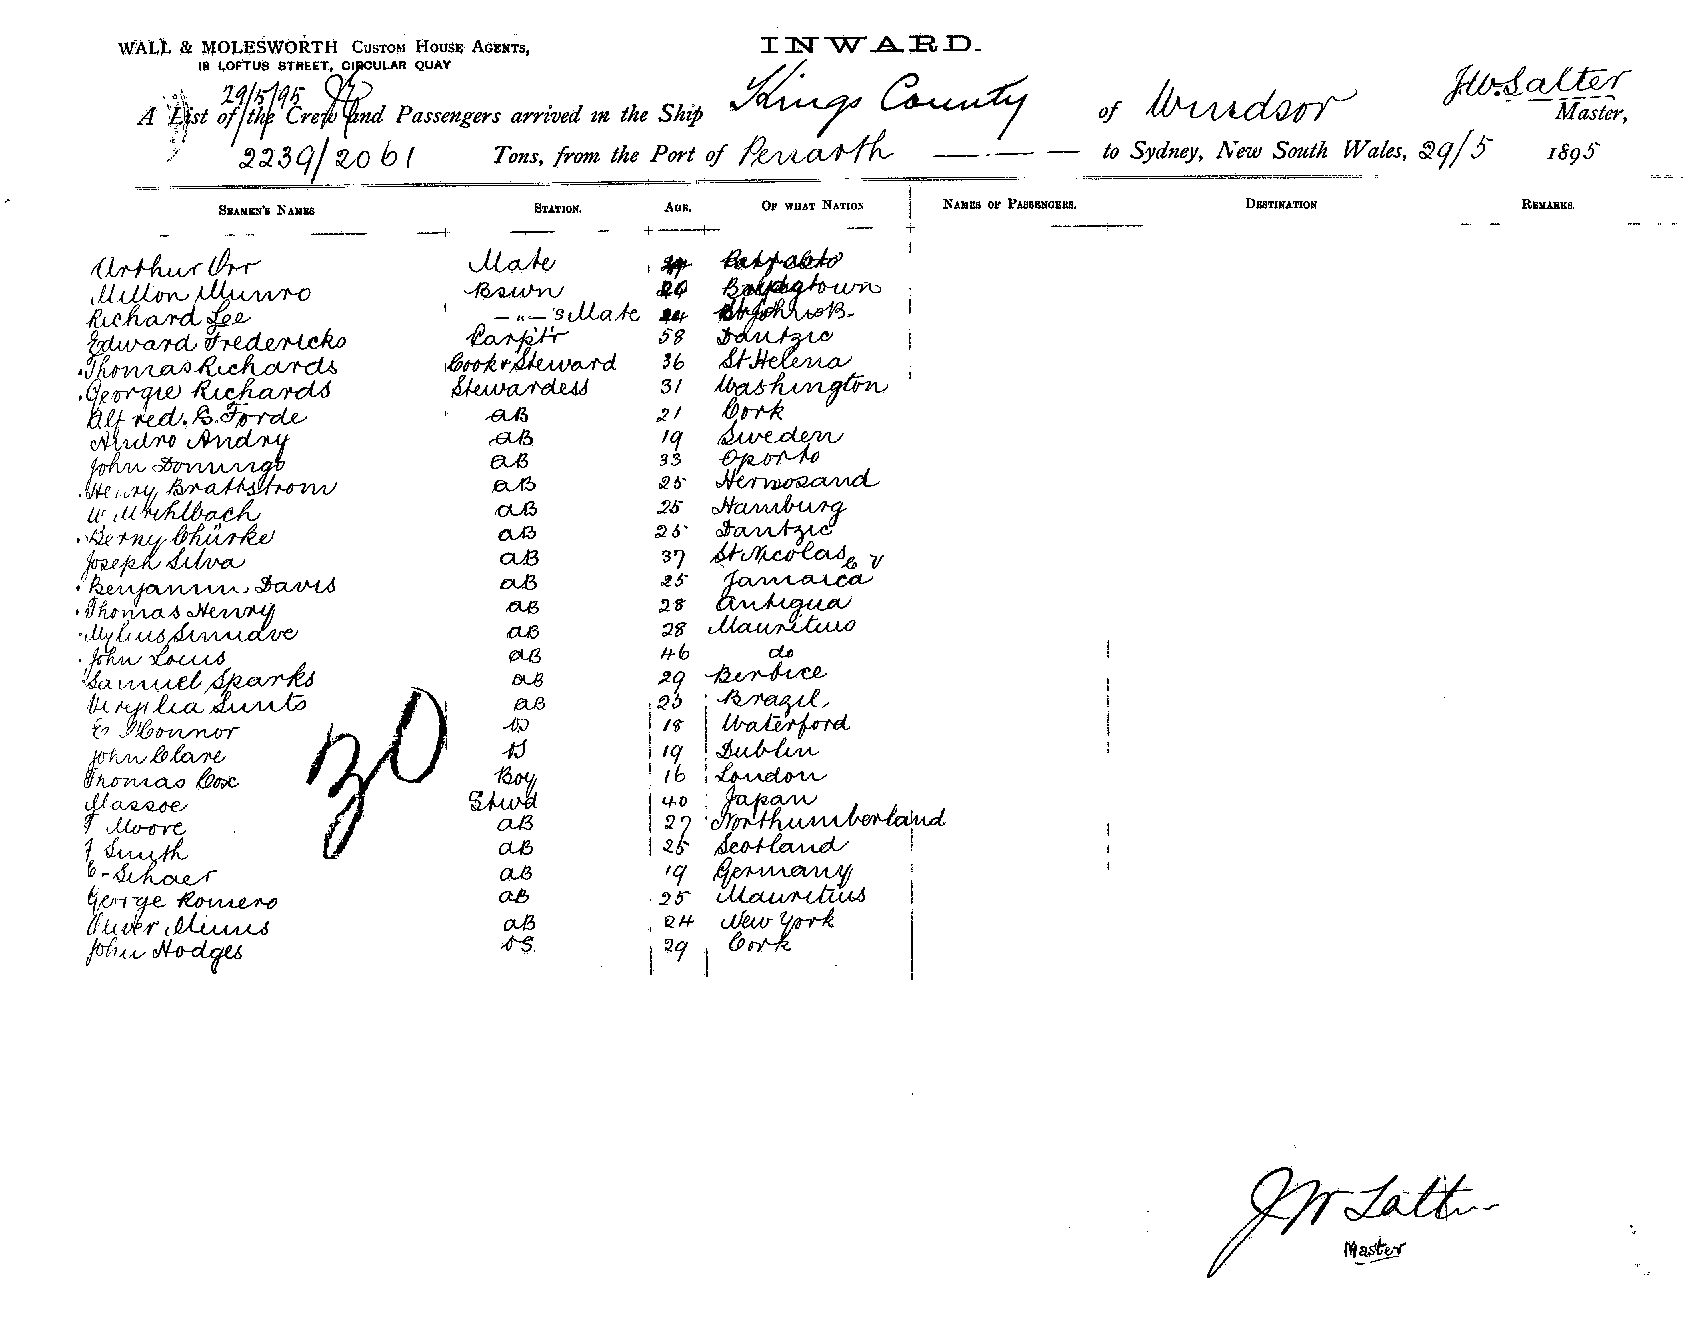 WALL & MOLESWORTH CUSTOM HOUSE AGENTS,
18 LOFTUS STREET, CIRCULAR QUAY
INWARD.
29/5/95
J.W. Salter
A List of the Crew and Passengers arrived in the Ship Kings County of Windsor Master,
2239/2061 Tons, from the Port of Penarth to Sydney, New South Wales, 29/5 1895
SEAMEN'S NAMES STATION. AGE. OF WHAT NATION NAMES OF PASSENGERS. DESTINATION REMARKS.
Arthur Orr Mate
Milton Munro Bswn
Richard Lee – " – 's Mate 24 St John NB
Edward Fredericks Carpt'r 58 Dantzic
Thomas Richards Cook & Steward 36 St Helena
Georgie Richards Stewardess 31 Washington
Alfred. B. Forde AB 21 Cork
Andro Andry AB 19 Sweden
John Domingo AB 33 Oporto
Henry Brattstrom AB 25 Hernosand
W. AB 25 Hamburg
Berny Chürke AB 25 Dantzic
Joseph Silva AB 37 St Nicolas C V
Benjamin Davis AB 25 Jamaica
Thomas Henry AB 28 Antigua
AB 28 Mauritius
John Louis AB 46 do
Samuel Sparks AB 29 Berbice
AB 23 Brazil
E O'Connor OS 18 Waterford
John Clare OS 19 Dublin
Thomas Cox Boy 16 London
Massoe Stwd 40 Japan
Moore AB 27 Northumberland
Smith AB 25 Scotland
Schaer AB 19 Germany
George Romero AB 25 Mauritius
Oliver Mimms AB 24 New York
John Hodges OS. 29 Cork
30
J W Salter
Master